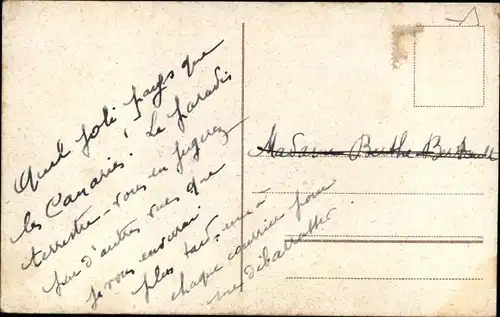 Quel joli pays que
les Canaries! Le paradis
terrestre - vous en jugerez
par d'autres vues que
je vous enverrai
plus tard, une à
chaque courrier pour
me débarrasser.
Madame Berthe